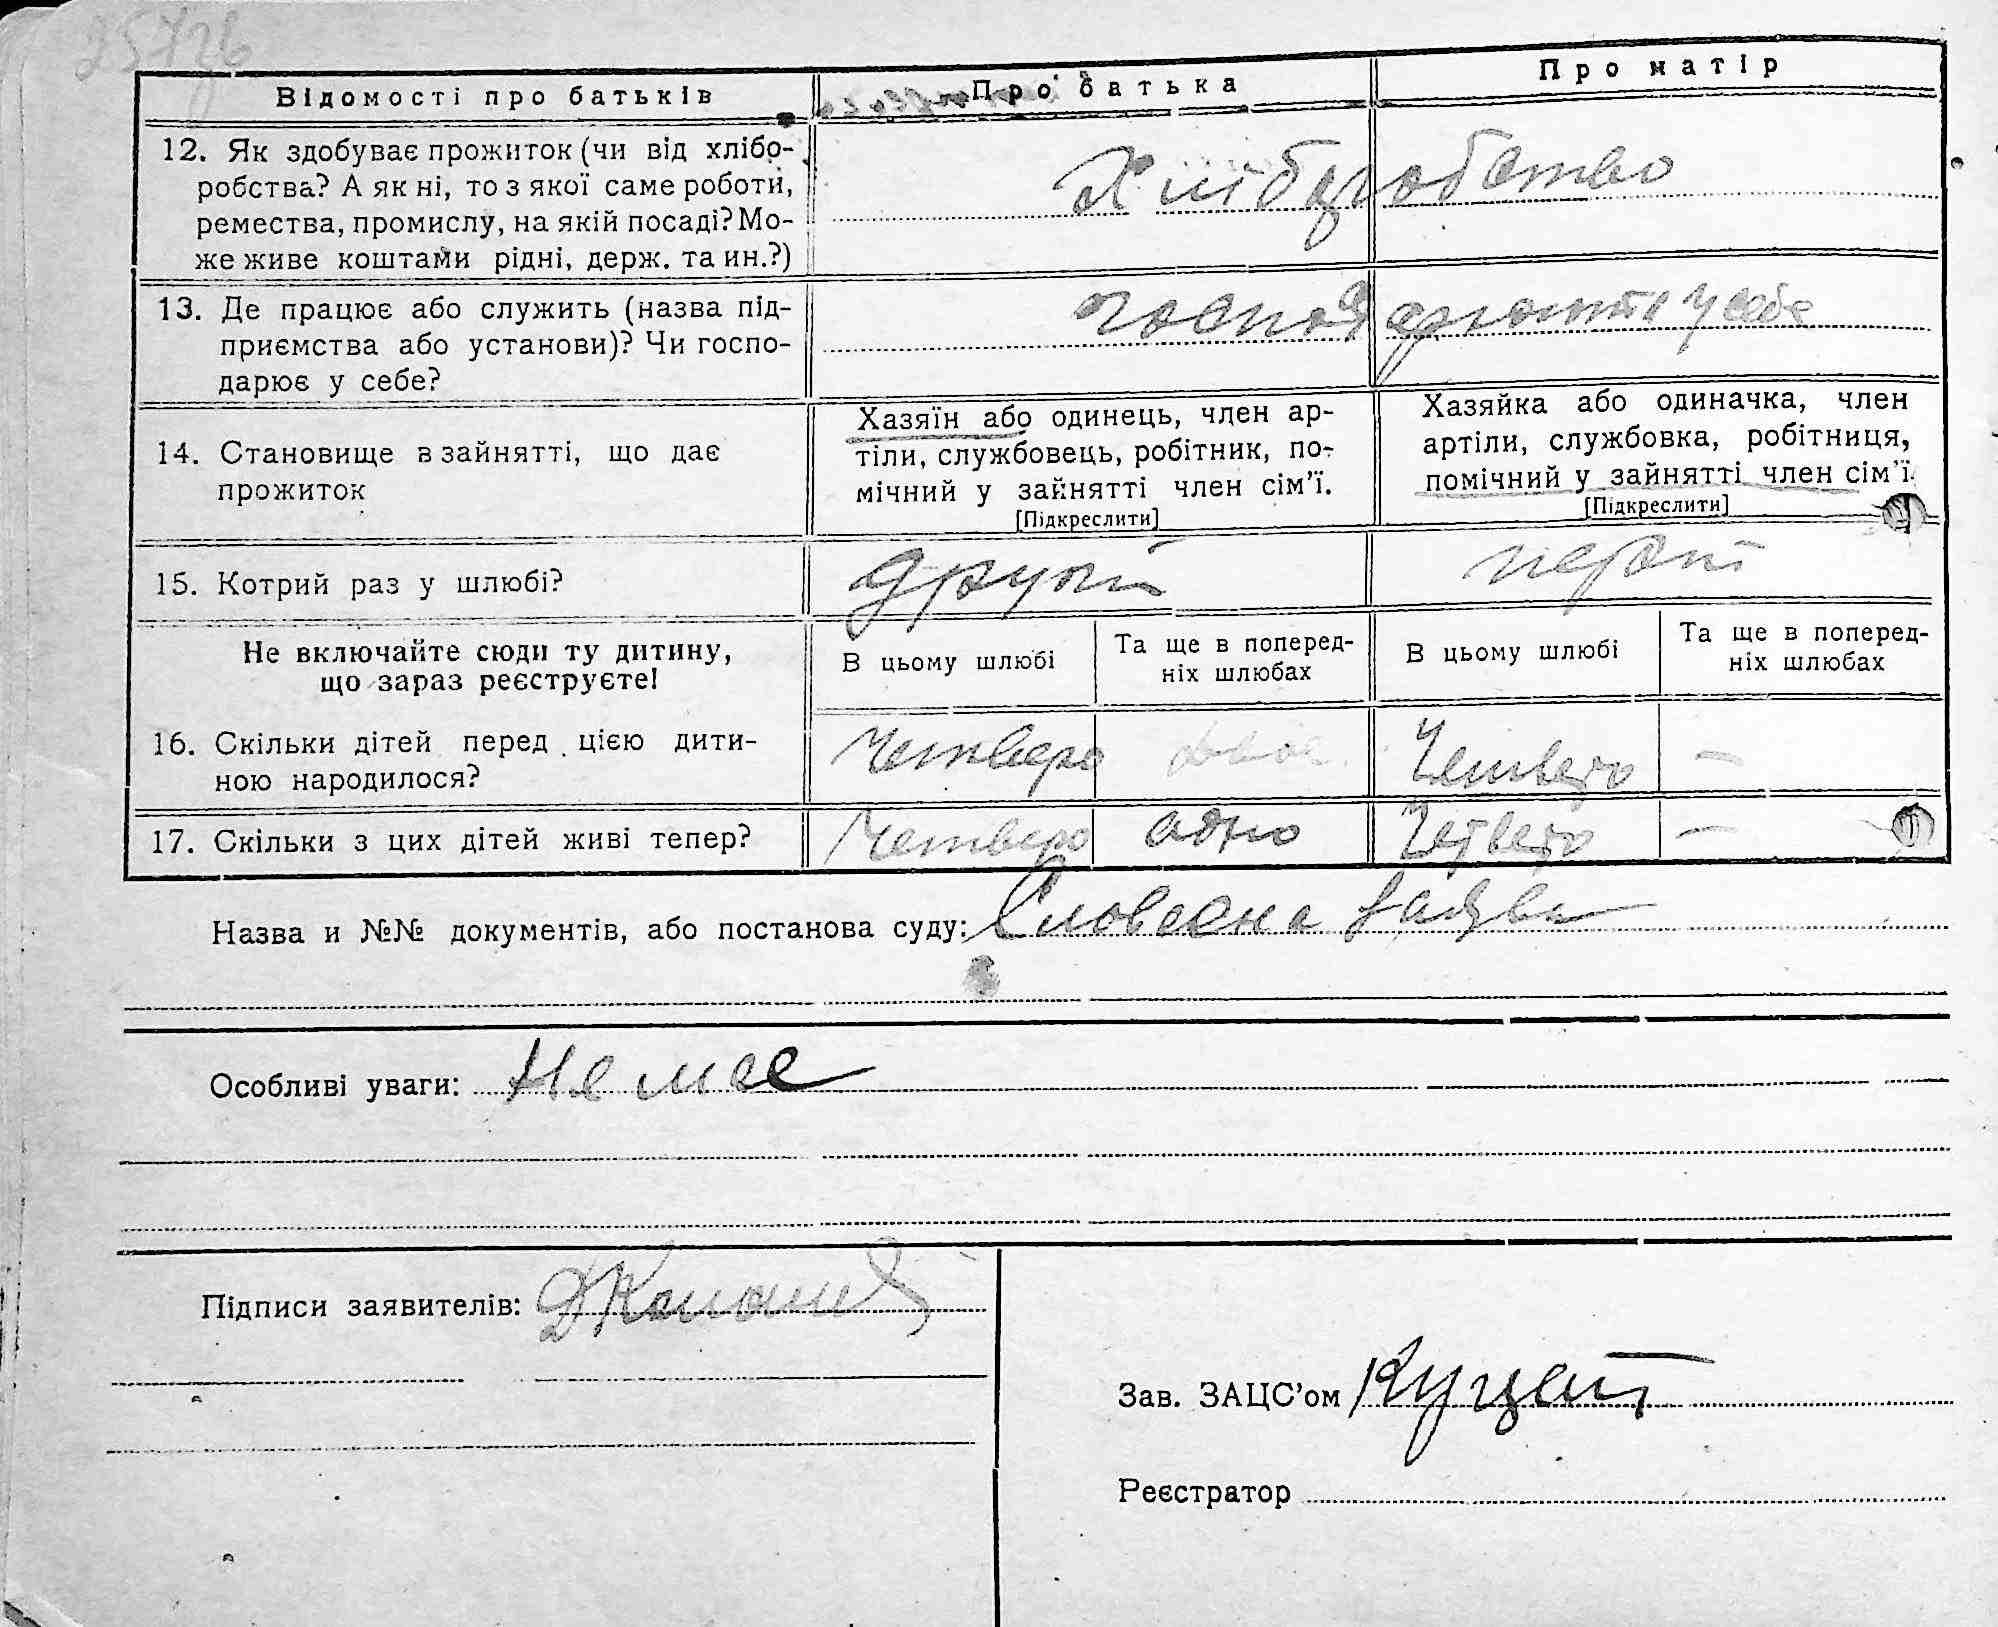 25726
Відомості про батьків
Про батька
Про матір
12. Як здобуває прожиток (чи від хлібо-
робства? А як ні, то з якої саме роботи,
ремества, промислу, на якій посаді? Мо-
же живе коштами рідні, держ. та ин.?)
Хліборобство
13. Де працює або служить (назва під-
приємства або установи)? Чи госпо-
дарює у себе?
у себе
14. Становище в зайнятті, що дає
прожиток
Хазяїн або одинець, член ар-
тіли, службовець, робітник, по-
мічний у зайнятті член сім'ї.
[Підкреслити]
Хазяйка або одиначка, член
артіли, службовка, робітниця,
помічний у зайнятті член сім'ї.
[Підкреслити]
15. Котрий раз у шлюбі?
другий
перший
Не включайте сюди ту дитину,
що зараз реєструєте!
В цьому шлюбі
Та ще в поперед-
ніх шлюбах
В цьому шлюбі
Та ще в поперед-
ніх шлюбах
16. Скільки дітей перед цією дити-
ною народилося?
Четверо
двоє
Четверо
—
17. Скільки з цих дітей живі тепер?
Четверо
одно
Четверо
—
Назва и №№ документів, або постанова суду: Словесна заява
Особливі уваги: Не має
Підписи заявителів:
Зав. ЗАЦС'ом
Реєстратор